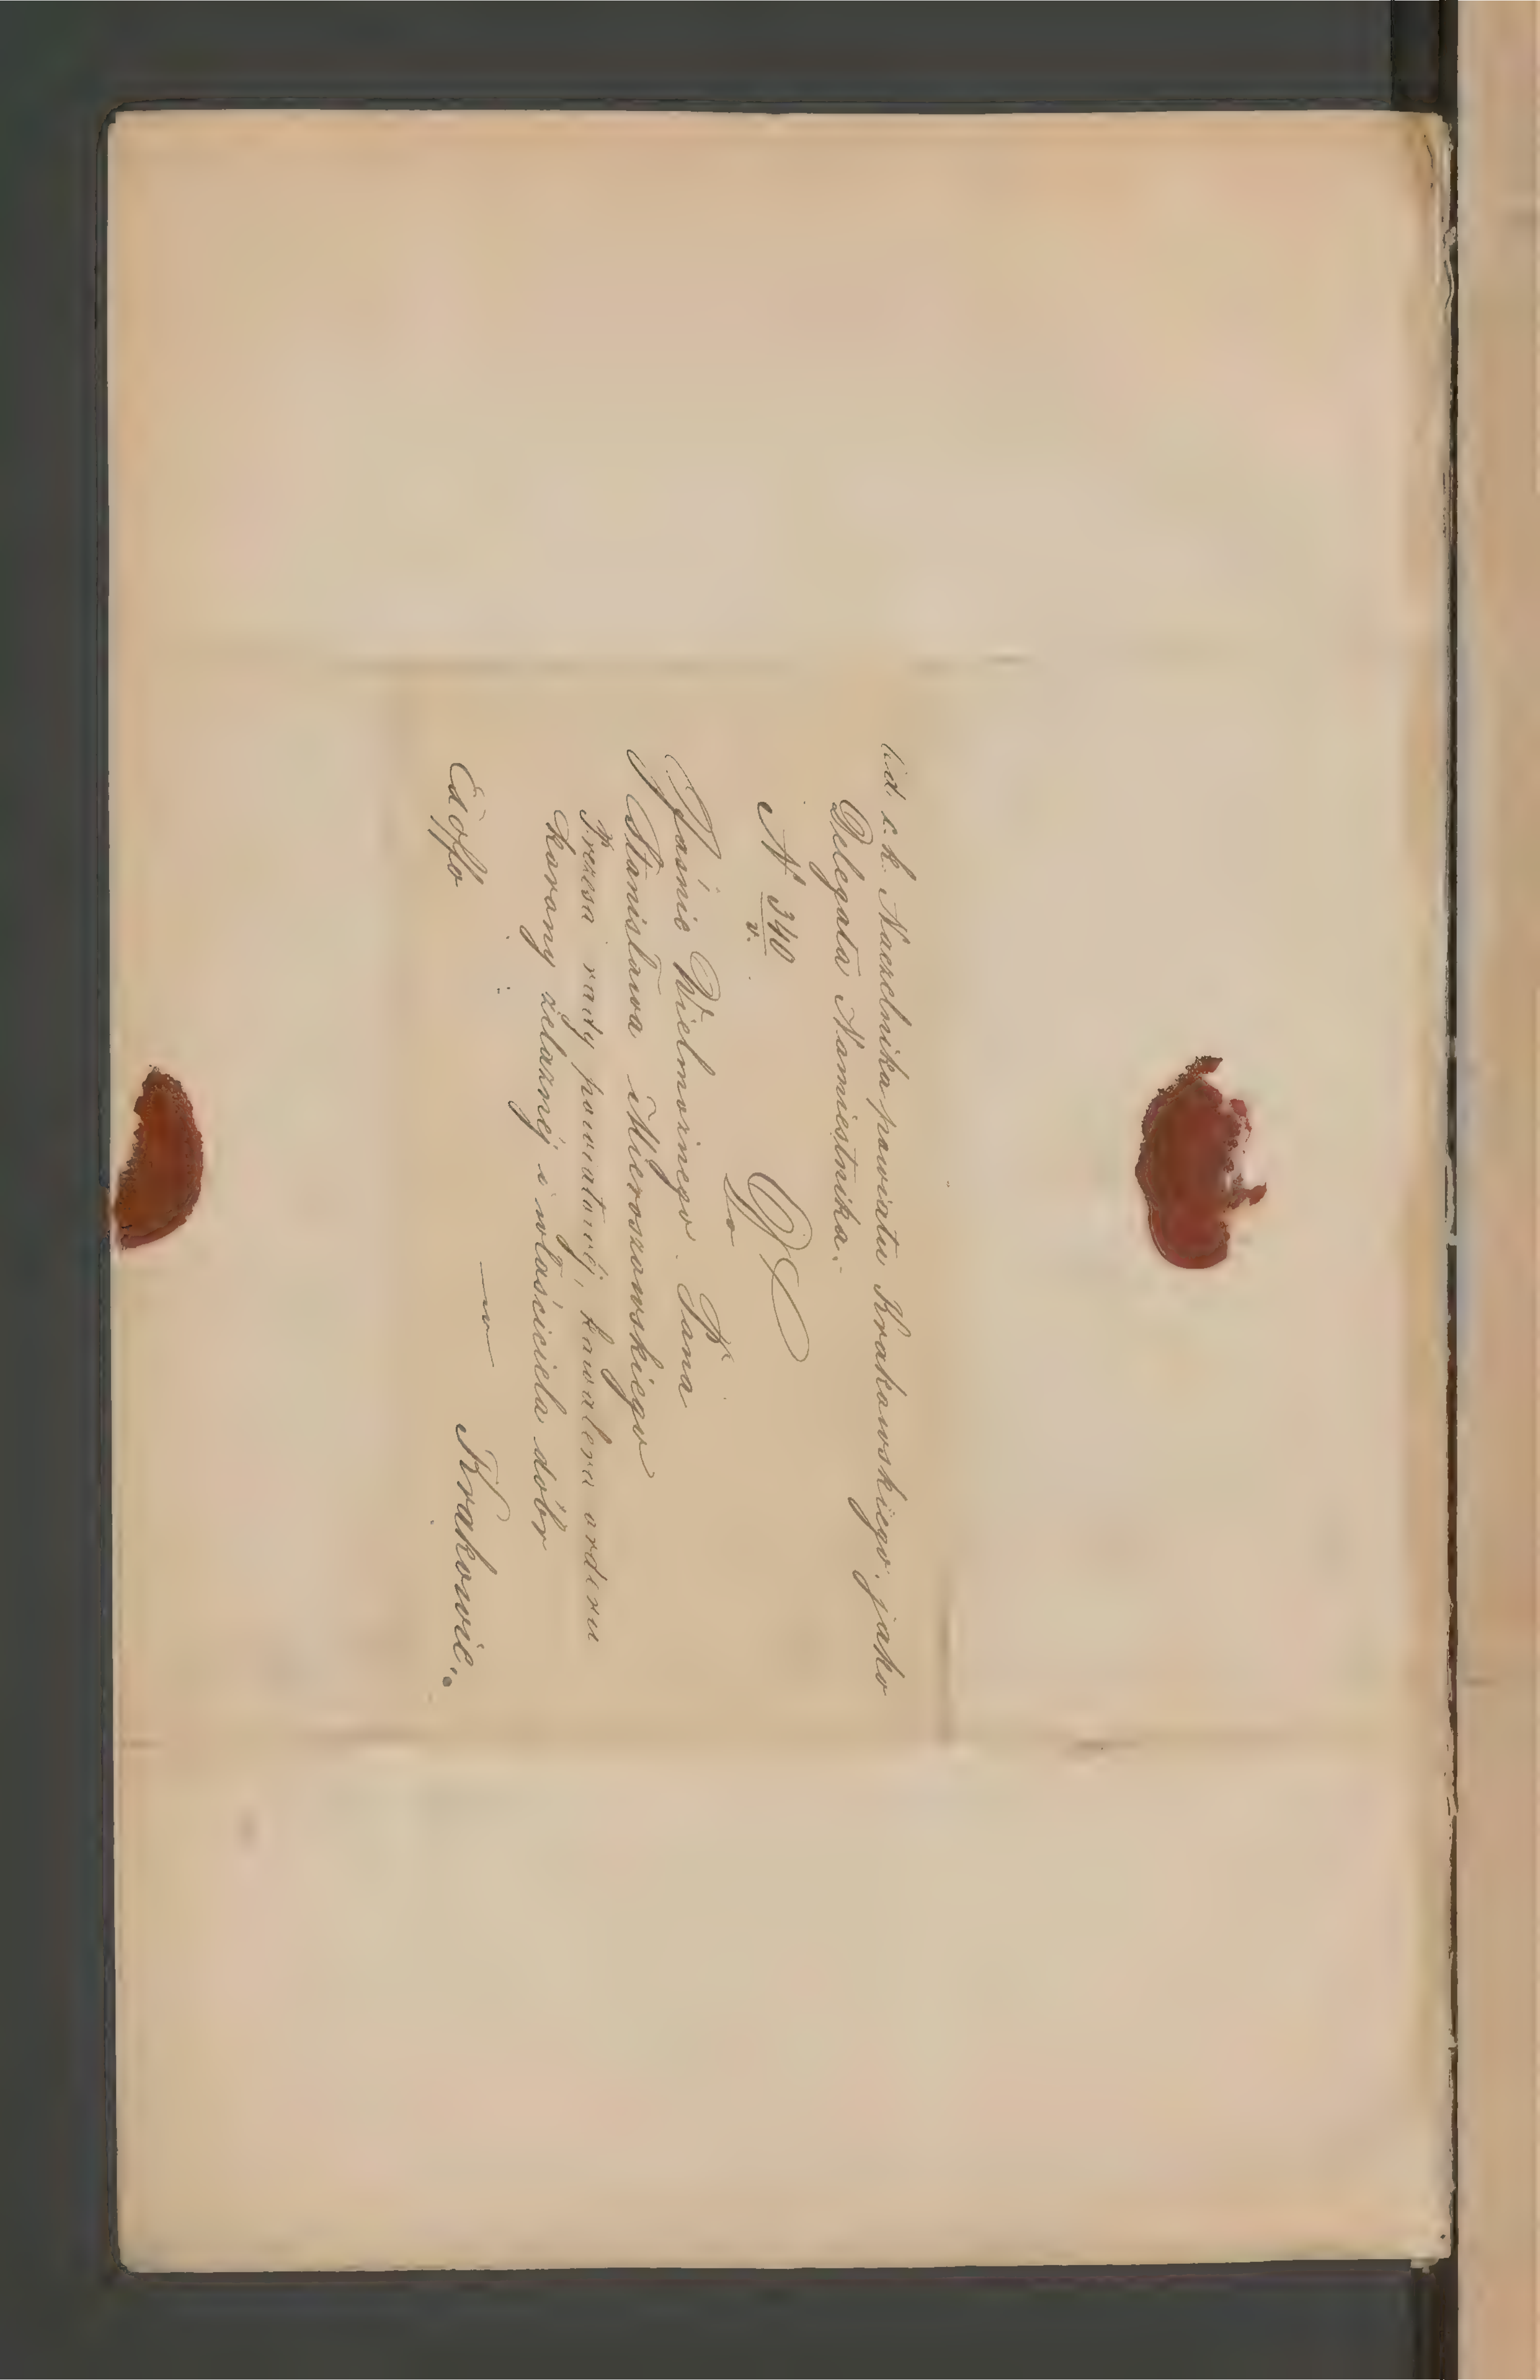 Od c. k. Naczelnika powiatu Krakowskiego, jako
Delegata Namiestnika.
N 340
v.
Do
Jaśnie Wielmożnego Pana
Stanisława Mieroszowskiego
Prezesa rady powiatowéj, kawalera orderu
korony żelaznéj i właściciela dóbr
w
Ex offo
Krakowie